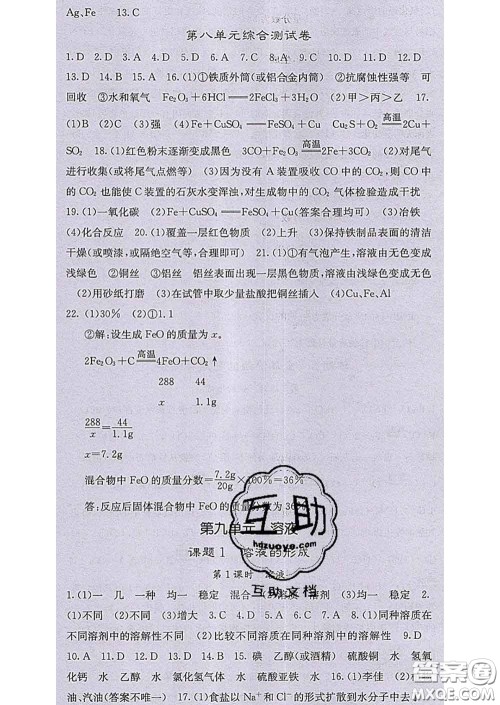 Ag、Fe 13.C
第八单元综合测试卷
1.D 2.D 3.A 4.D 5.D 6.C 7.C 8.A 9.C 10.A 11.D 12.D
13.D 14.B 15.A 16.(1)①铁质外筒(或铝合金内筒) ②抗腐蚀性强等 可
回收 ③水和氧气 Fe₂O₃+6HCl══2FeCl₃+3H₂O (2)甲>丙>乙 17.
(1)B (2)C (3)强 (4)Fe+CuSO₄══FeSO₄+Cu Cu₂S+O₂ 高温 2Cu+
SO₂ 18.(1)红色粉末逐渐变成黑色 3CO+Fe₂O₃ 高温 2Fe+3CO₂ (2)对尾气
进行收集(或将尾气点燃等) (3)因为没有 A 装置吸收 CO 中的 CO₂,CO
中的 CO₂ 也能使 C 装置的石灰水变浑浊,对生成物中的 CO₂ 气体检验造成干扰
19.(1)一氧化碳 (2)Fe+CuSO₄══FeSO₄+Cu(答案合理均可) (3)冶铁
(4)化合反应 20.(1)覆盖一层红色物质 (2)上升 (3)保持铁制品表面的清洁
干燥(或喷漆,或隔绝空气等,合理即可) 21.(1)①有气泡产生,溶液由无色变成
浅绿色 ②铜丝 ③铝丝 铝丝表面出现一层黑色物质,溶液由浅绿色变成无色
(2)用砂纸打磨 (3)在试管中取少量盐酸把铜丝插入 (4)Cu、Fe、Al
22.(1)30% (2)①1.1
②解:设生成 FeO 的质量为 x。
2Fe₂O₃+C 高温 4FeO+CO₂↑
288 44
x 1.1g
288/x=44/1.1g
x=7.2g
混合物中 FeO 的质量分数=7.2g/20g×100%=36%
答:反应后固体混合物中 FeO 的质量分数为 36%。
第九单元 溶液
课题 1 溶液的形成
第 1 课时 溶液
1.(1)一 几 一种 均一 稳定 混合 (2)溶质 溶剂 (3)均一 稳定 2.
(1)不同 (2)不同 (3)增大 3.C 4.D 5.D 6.A 7.C 8.(1)同种溶质在
不同溶剂中的溶解性不同 (2)比较不同溶质在同种溶剂中的溶解性 9.D
10.A 11.D 12.D 13.D 14.D 15.碘 乙醇(或酒精) 硫酸铜 水 氢氧
化钙 水 乙醇 水 氯化氢气体 水 硫酸亚铁 水 16.(1)李佳 (2)
油、汽油(答案不唯一) 17.(1)食盐以 Na⁺ 和 Cl⁻ 的形式扩散到水分子中去了
互助
hdzuoye.com
互助文档